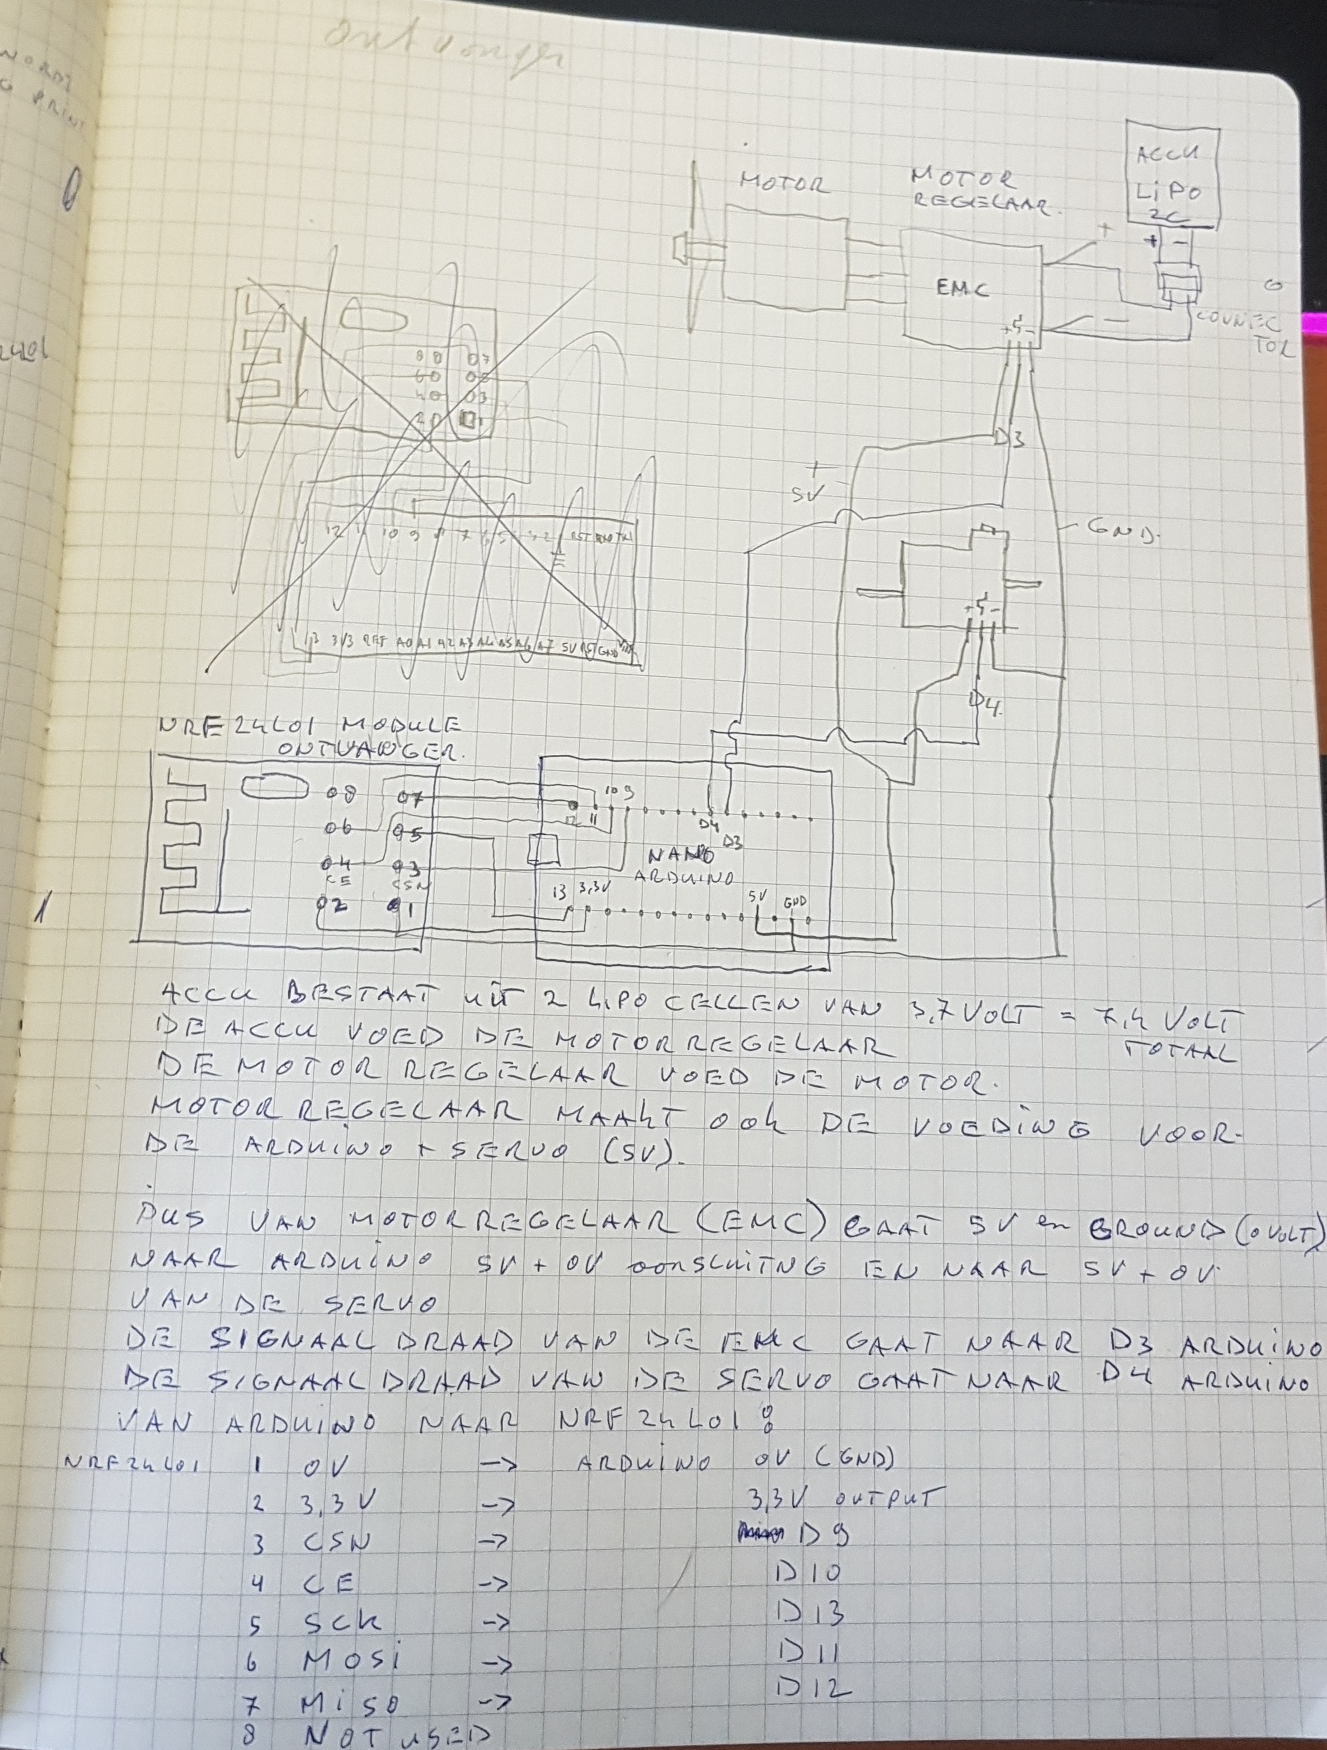 ontvanger
NORDI
G PRINT
2401
1
ACCU
LiPO
2C
+ -
MOTOR
MOTOR
REGELAAR.
+
EMC
-
+ S -
CONNEC
TOR
D3
+
5V
GND.
+ S -
D4
08 07
06
04 03
02 1
12 11 10 9 8 7 6 5 3 2 RST
13 3V3 REF A0 A1 A2 A3 A4 A5 A6 A7 5V RST GND
NRF24L01 MODULE
ONTVANGER.
08 07
06 05
04 03
CE CSN
02 01
12 11 10 9 D4 D3
NANO
ARDUINO
13 3,3V 5V GND
ACCU BESTAAT UIT 2 LIPO CELLEN VAN 3,7 VOLT = 7,4 VOLT
TOTAAL
DE ACCU VOED DE MOTORREGELAAR
DE MOTOR REGELAAR VOED DE MOTOR.
MOTOR REGELAAR MAAKT OOK DE VOEDING VOOR
DE ARDUINO + SERVO (5V).
DUS VAN MOTORREGELAAR (EMC) GAAT 5V en GROUND (0 VOLT)
NAAR ARDUINO 5V + 0V aansluitng EN NAAR 5V + 0V
VAN DE SERVO
DE SIGNAAL DRAAD VAN DE EMC GAAT NAAR D3 ARDUINO
DE SIGNAAL DRAAD VAN DE SERVO GAAT NAAR D4 ARDUINO
VAN ARDUINO NAAR NRF24L01:
NRF24L01 1 0V -> ARDUINO 0V (GND)
2 3,3V -> 3,3V OUTPUT
3 CSN -> D9
4 CE -> D10
5 SCK -> D13
6 MOSI -> D11
7 MISO -> D12
8 NOT USED